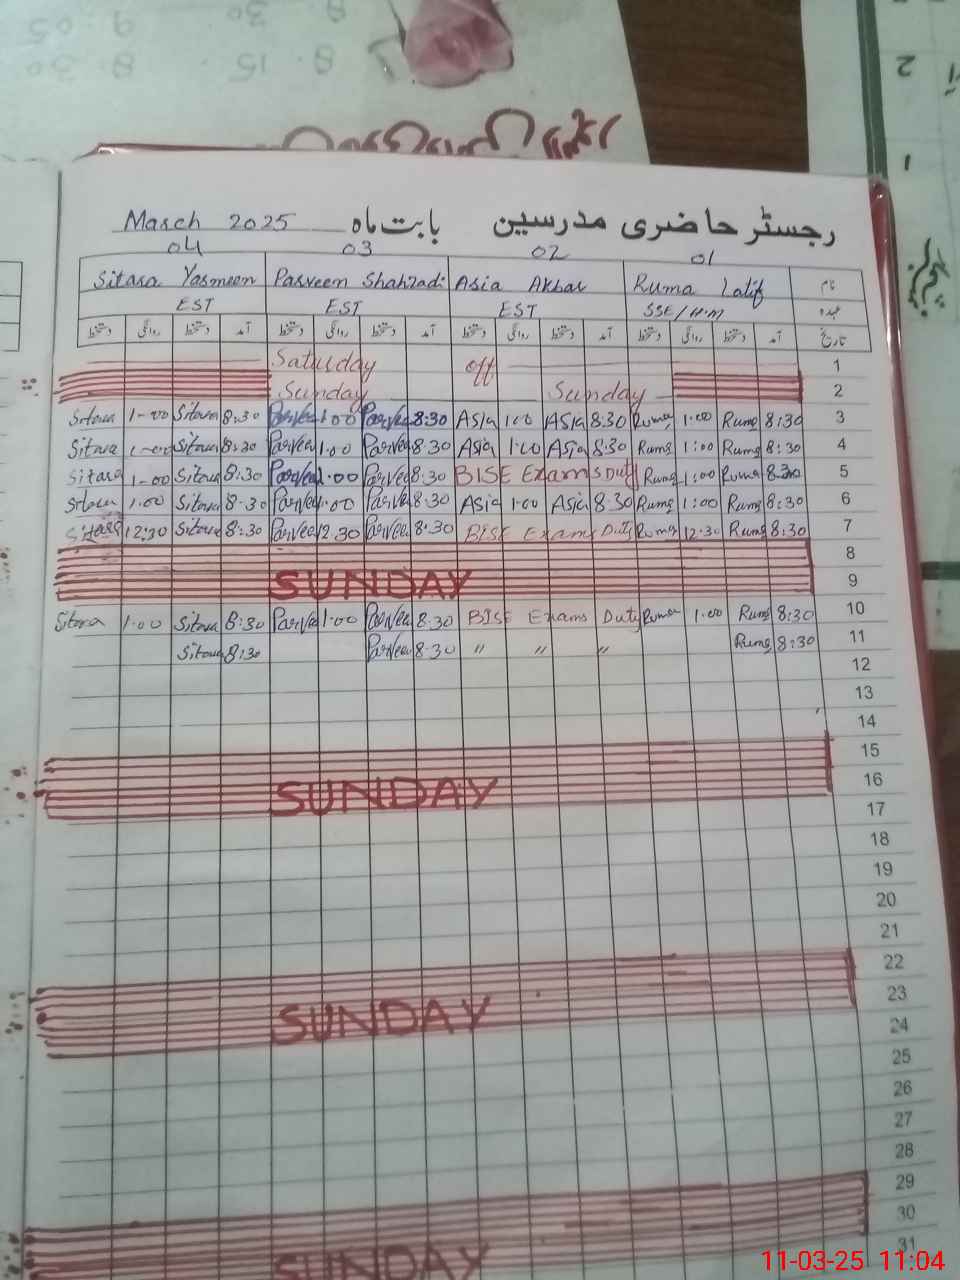 8 . 30 . 9 . 05
8 . 15 . 8 . 30
2
1
رجسٹر حاضری مدرسین بابت ماہ March 2025
04 03 02 01
Sitara Yasmeen Parveen Shahzadi Asia Akbar Ruma Latif نام
EST EST EST SSE/H.M عہدہ
دستخط روانگی دستخط آمد دستخط روانگی دستخط آمد دستخط روانگی دستخط آمد دستخط روانگی دستخط آمد تاریخ
Saturday off 1
Sunday Sunday 2
Sitara 1-00 Sitara 8:30 Parveen 1.00 Parveen 8:30 Asia 1:00 Asia 8:30 Ruma 1:00 Ruma 8:30 3
Sitara 1-00 Sitara 8:30 Parveen 1.00 Parveen 8.30 Asia 1:00 Asia 8:30 Ruma 1:00 Ruma 8:30 4
Sitara 1-00 Sitara 8:30 Parveen 1.00 Parveen 8.30 BISE Exams Duty Ruma 1:00 Ruma 8:30 5
Sitara 1.00 Sitara 8.30 Parveen 1.00 Parveen 8.30 Asia 1.00 Asia 8.30 Ruma 1:00 Ruma 8:30 6
Sitara 12:30 Sitara 8:30 Parveen 12.30 Parveen 8.30 BISE Exams Duty Ruma 12:30 Ruma 8:30 7
8
SUNDAY 9
Sitara 1.00 Sitara 8:30 Parveen 1.00 Parveen 8.30 BISE Exams Duty Ruma 1:00 Ruma 8:30 10
Sitara 8:30 Parveen 8.30 " " " Ruma 8:30 11
12
13
14
15
SUNDAY 16
17
18
19
20
21
22
SUNDAY 23
24
25
26
27
28
29
SUNDAY 30
31
11-03-25 11:04